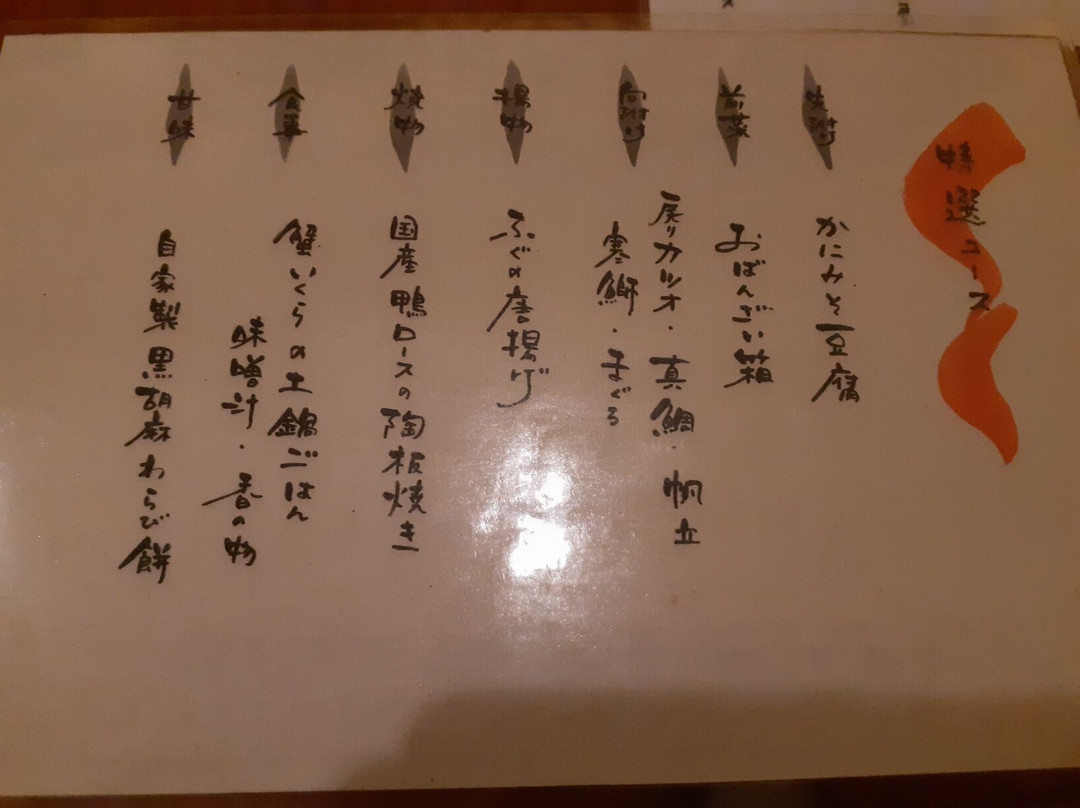 特選コース
先附け
かにみそ豆腐
前菜
おばんざい箱
向附け
戻りカツオ・真鯛・帆立
寒鰤・まぐろ
揚物
ふぐの唐揚げ
焼物
国産鴨ロースの陶板焼き
食事
蟹いくらの土鍋ごはん
味噌汁・香の物
甘味
自家製黒胡麻わらび餅